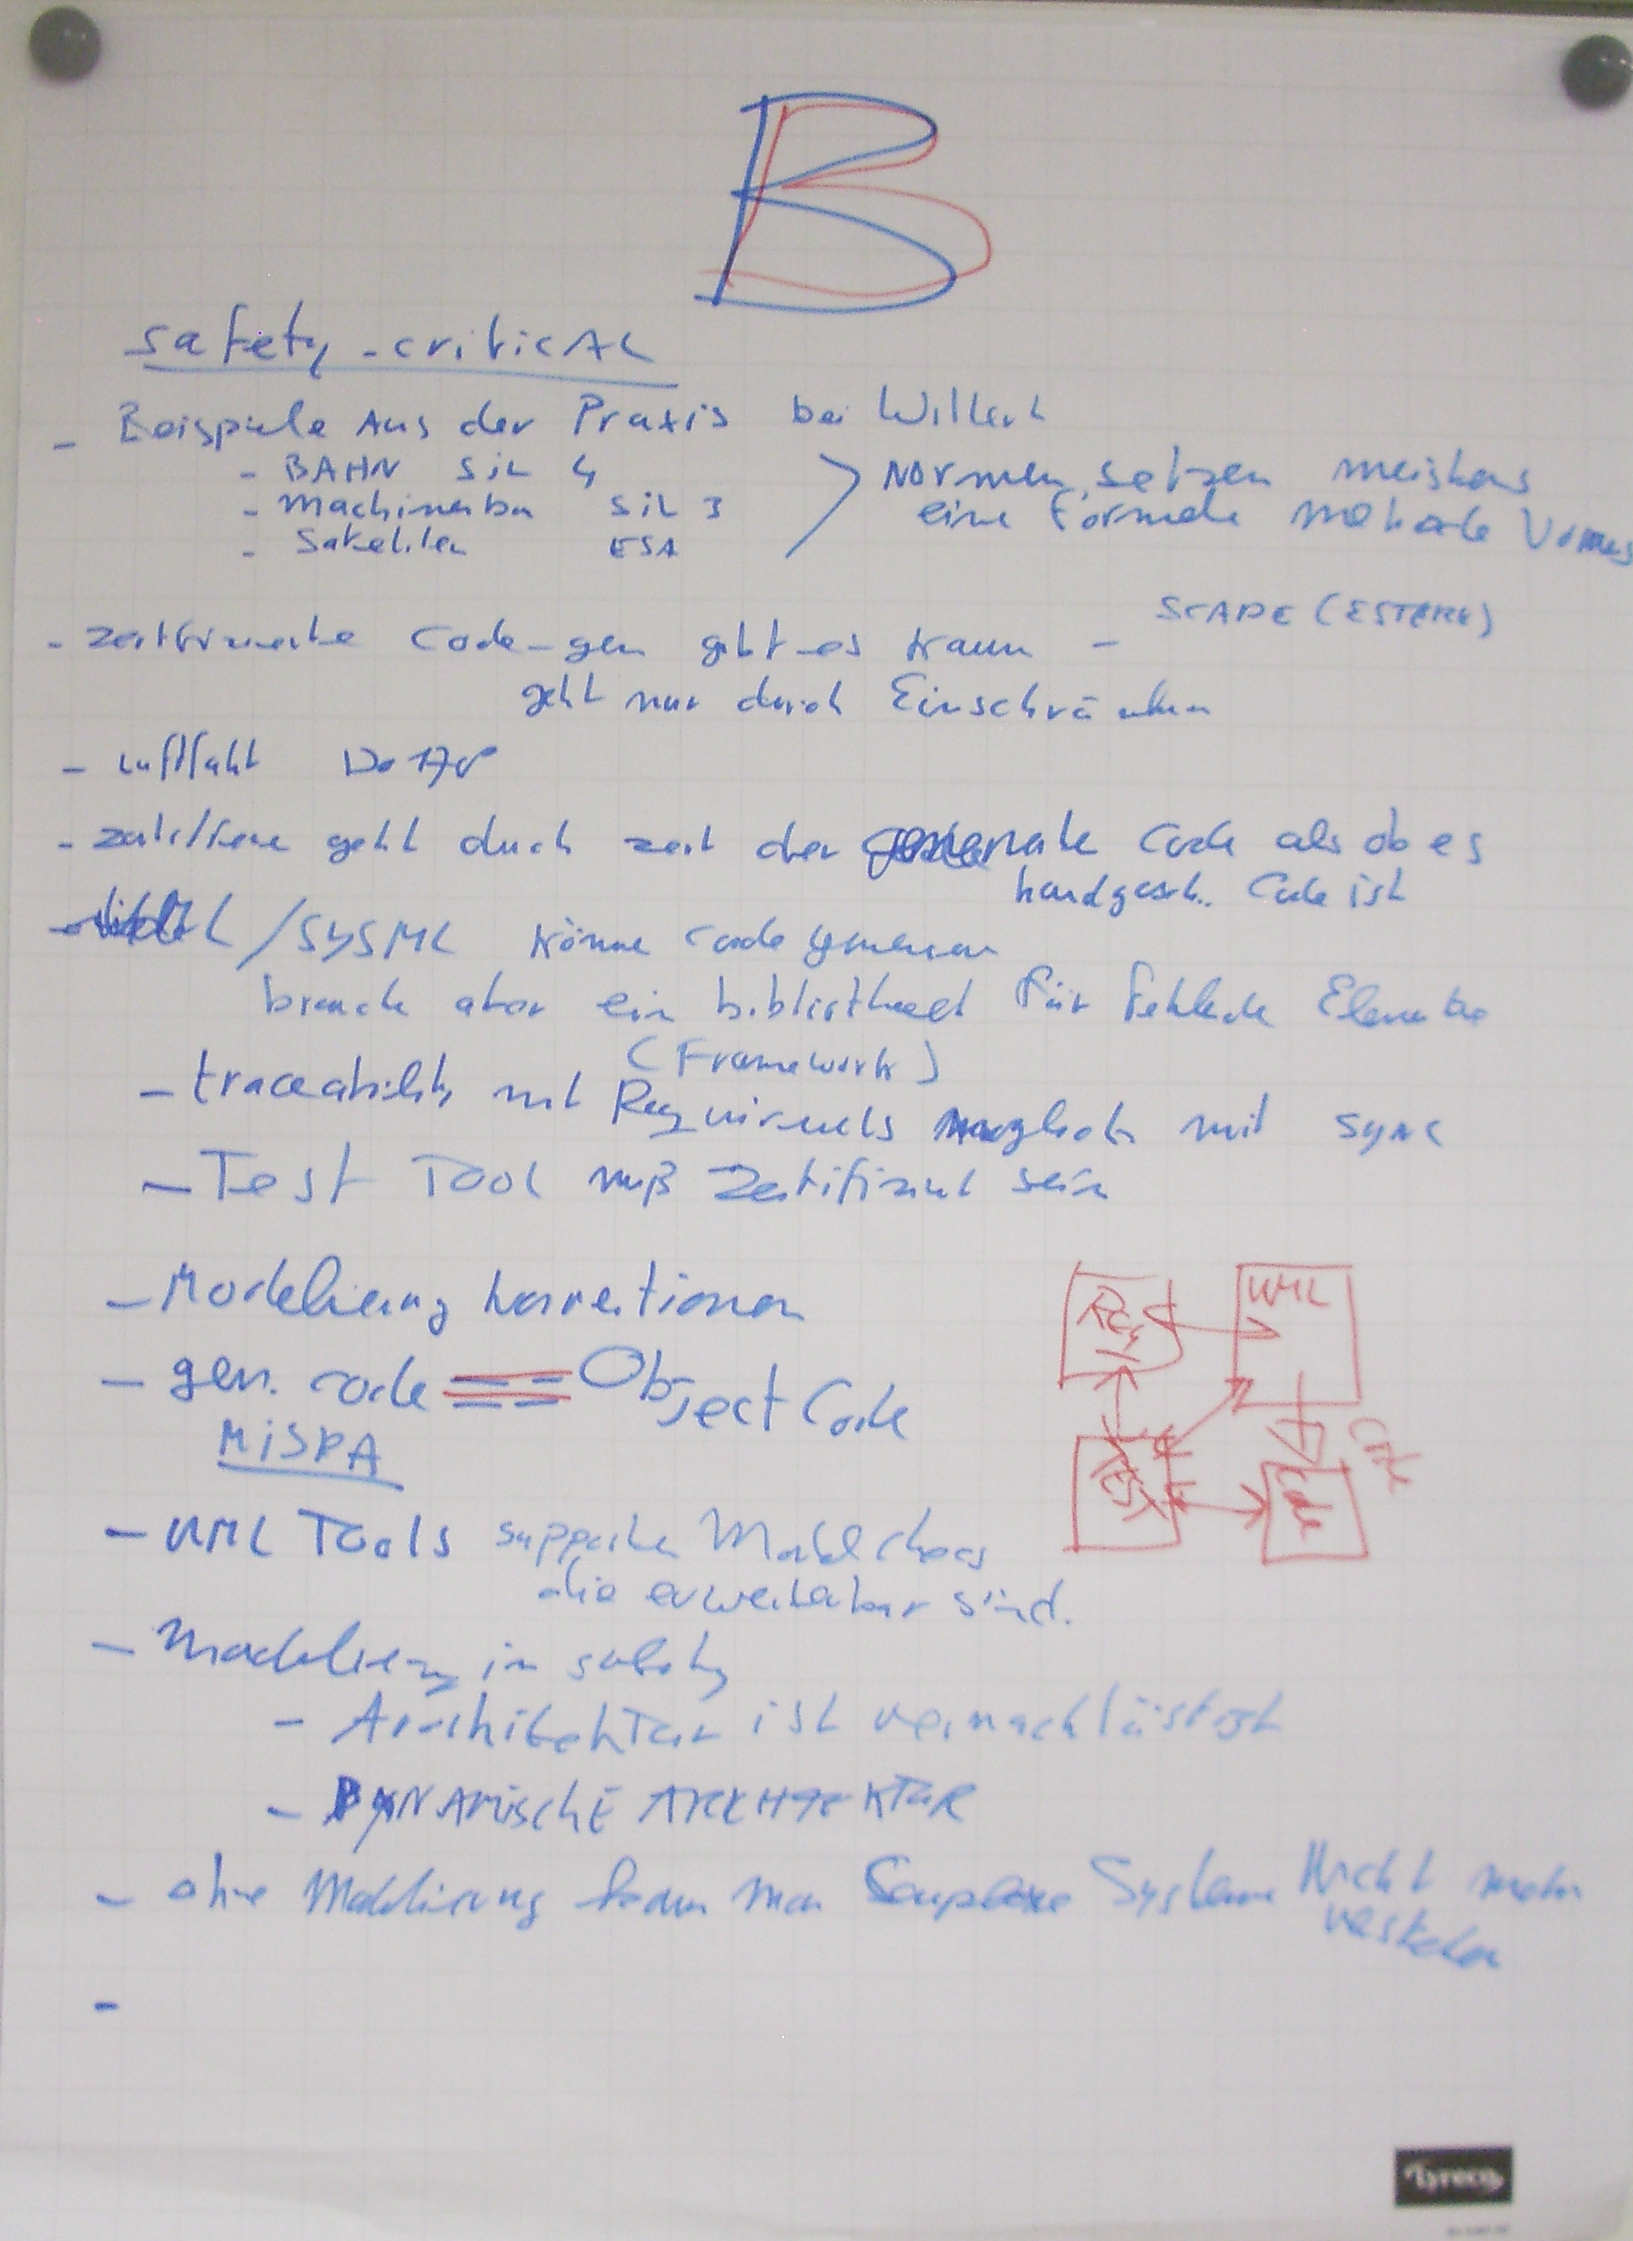 B
safety-critical
- Beispiele Aus der Praxis bei Willert
- BAHN SiL 4
- Machinenba SiL 3
- Sateliten ESA
Normen setzen meistens
eine Formale methode
- code-gen gibt es kaum - SCADE (ESTEREL)
geht nur durch Einschränken
- Luftfaht Do 178
- geht durch zert der generierte Code als ob es
handgesch. Code ist
/SYSML könne code generieren
brauche aber ein bibliothek für fehlede Elemente
(Framework)
- traceability mit Requirements möglich mit sync
- Test Tool muß Zertifiziert sein
- Modelierung konventionen
- gen. code == Object Code
MISRA
- UML Tools supporten Modelchecks
die erweiterbar sind.
- Modelierung in safety
- Architektur ist vernachlässigt
- DYNAMische ARCHITEKTUR
- ohne Modelierung kann man Complexe Systeme Nicht mehr
verstehen
-
Req
UML
Test
Code
Code
Lyreco